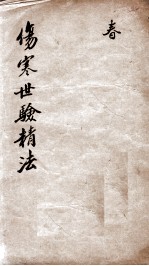 春
傷寒世驗精法